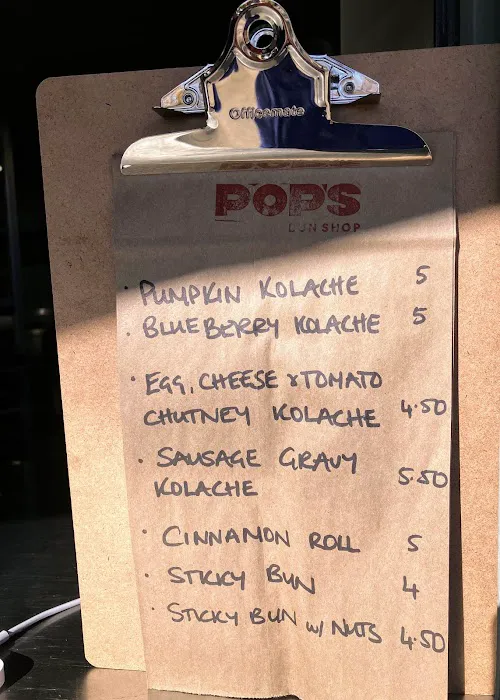 Officemate
POP'S
BUN SHOP
· PUMPKIN KOLACHE 5
· BLUEBERRY KOLACHE 5
· EGG, CHEESE & TOMATO
CHUTNEY KOLACHE 4.50
· SAUSAGE GRAVY
KOLACHE 5.50
· CINNAMON ROLL 5
· STICKY BUN 4
· STICKY BUN w/ NUTS 4.50